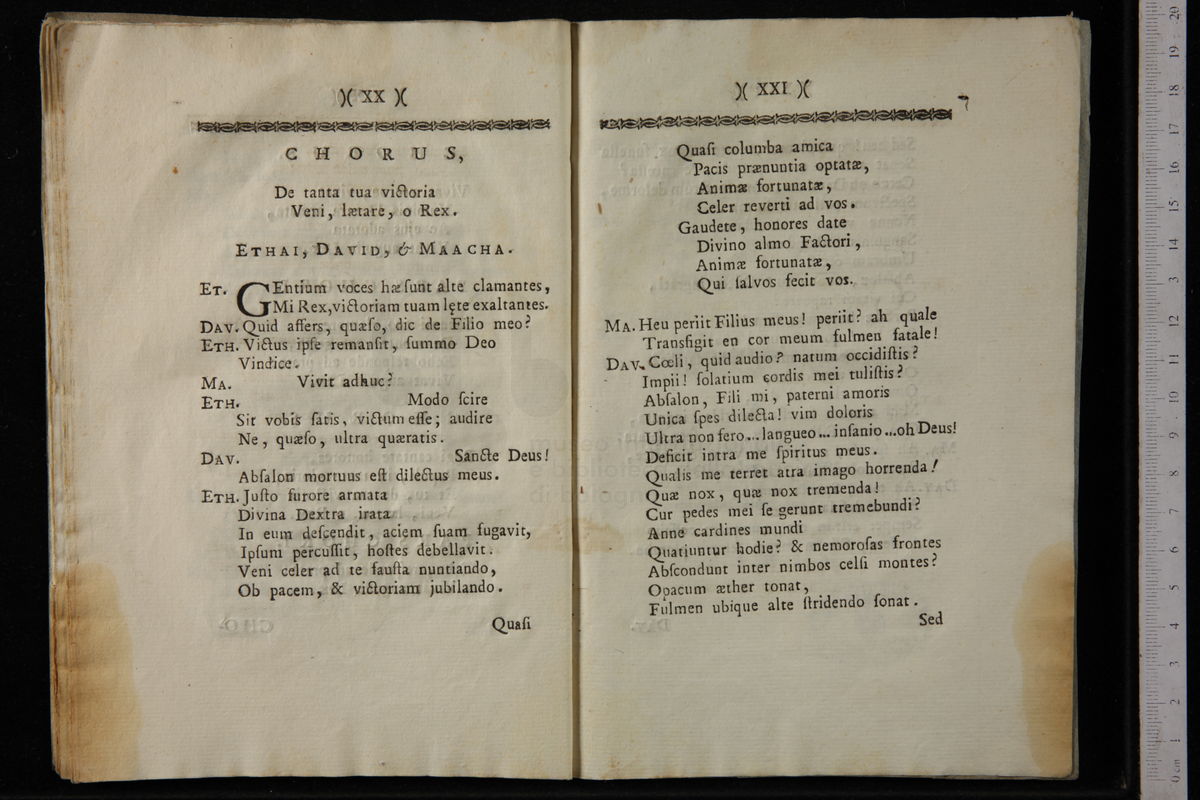 )( XX )(
CHORUS,
De tanta tua victoria
Veni, lætare, o Rex.
ETHAI, DAVID, & MAACHA.
ET. GEntium voces hæ ſunt alte clamantes,
Mi Rex, victoriam tuam lęte exaltantes.
DAV. Quid affers, quæſo, dic de Filio meo?
ETH. Victus ipſe remanſit, ſummo Deo
Vindice.
MA. Vivit adhuc?
ETH. Modo ſcire
Sit vobis ſatis, victum eſſe; audire
Ne, quæſo, ultra quæratis.
DAV. Sancte Deus!
Abſalon mortuus eſt dilectus meus.
ETH. Juſto furore armata
Divina Dextra irata
In eum deſcendit, aciem ſuam fugavit,
Ipſum percuſſit, hoſtes debellavit.
Veni celer ad te fauſta nuntiando,
Ob pacem, & victoriam jubilando.
Quaſi
)( XXI )(
7
Quaſi columba amica
Pacis prænuntia optatæ,
Animæ fortunatæ,
Celer reverti ad vos.
Gaudete, honores date
Divino almo Factori,
Animæ fortunatæ,
Qui ſalvos fecit vos.
MA. Heu periit Filius meus! periit? ah quale
Transfigit en cor meum fulmen fatale!
DAV. Cœli, quid audio? natum occidiſtis?
Impii! ſolatium cordis mei tuliſtis?
Abſalon, Fili mi, paterni amoris
Unica ſpes dilecta! vim doloris
Ultra non fero... langueo... inſanio... oh Deus!
Deficit intra me ſpiritus meus.
Qualis me terret atra imago horrenda!
Quæ nox, quæ nox tremenda!
Cur pedes mei ſe gerunt tremebundi?
Anne cardines mundi
Quatiuntur hodie? & nemoroſas frontes
Abſcondunt inter nimbos celſi montes?
Opacum æther tonat,
Fulmen ubique alte ſtridendo ſonat.
Sed
0 cm 1 2 3 4 5 6 7 8 9 10 11 12 13 14 15 16 17 18 19 20